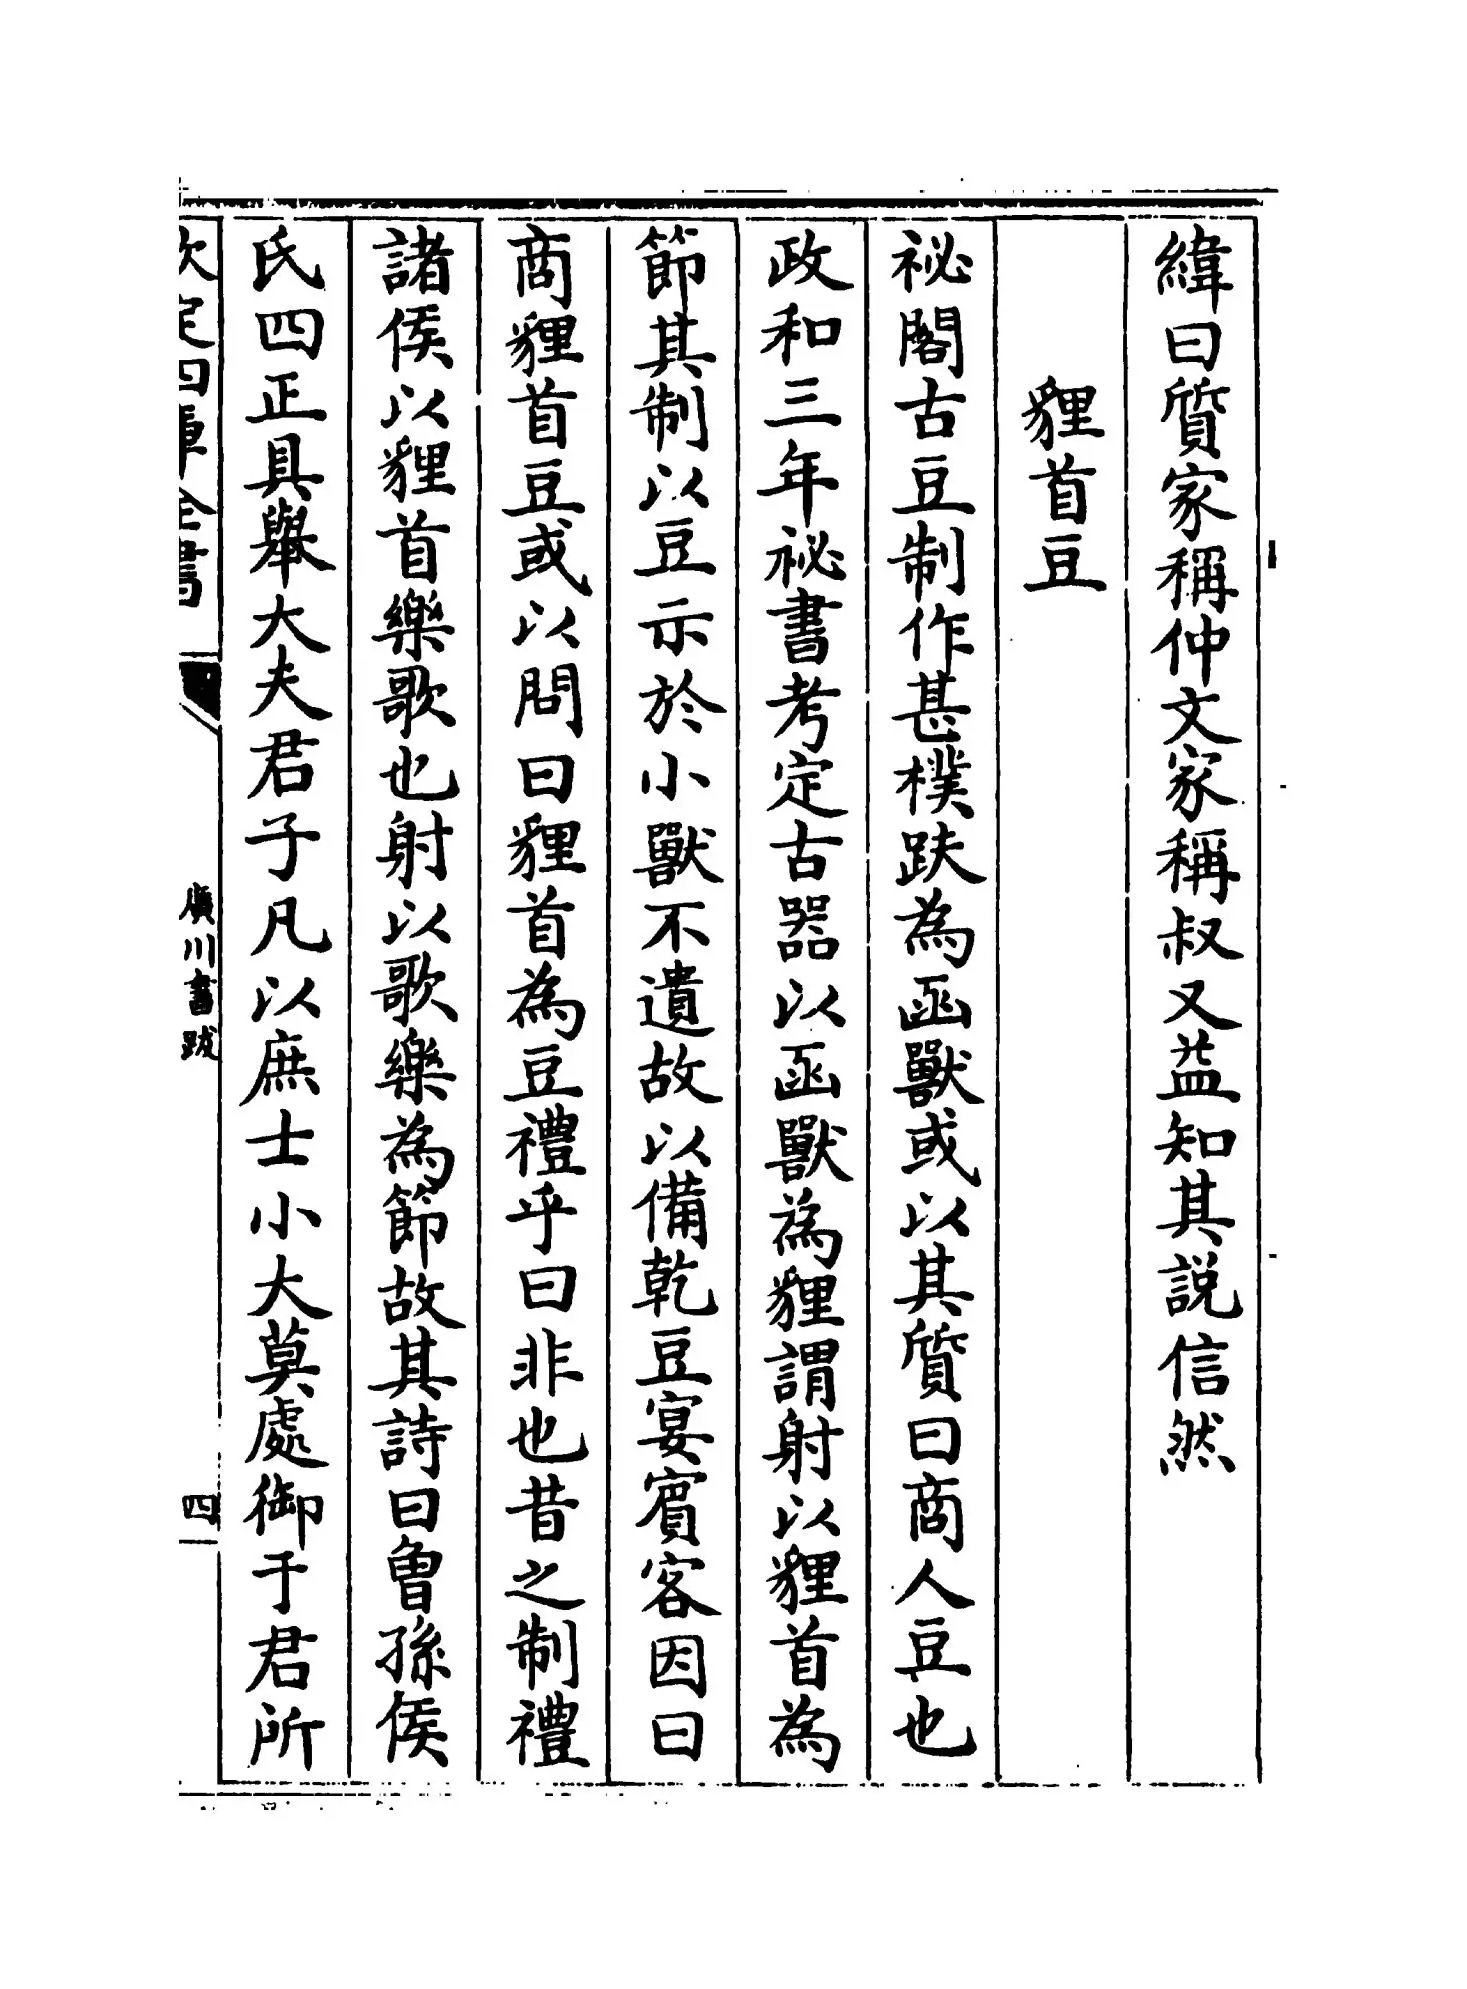 緯曰質家稱仲文家稱叔又益知其説信然
貍首豆
祕閣古豆制作甚樸趺為函獸或以其質曰商人豆也
政和三年祕書考定古器以函獸為貍謂射以貍首為
節其制以豆示於小獸不遺故以備乾豆宴賓客因曰
商貍首豆或以問曰貍首為豆禮乎曰非也昔之制禮
諸侯以貍首樂歌也射以歌樂為節故其詩曰曾孫侯
氏四正具舉大夫君子凡以庶士小大莫處御于君所
欽定四庫全書
廣川書跋
四